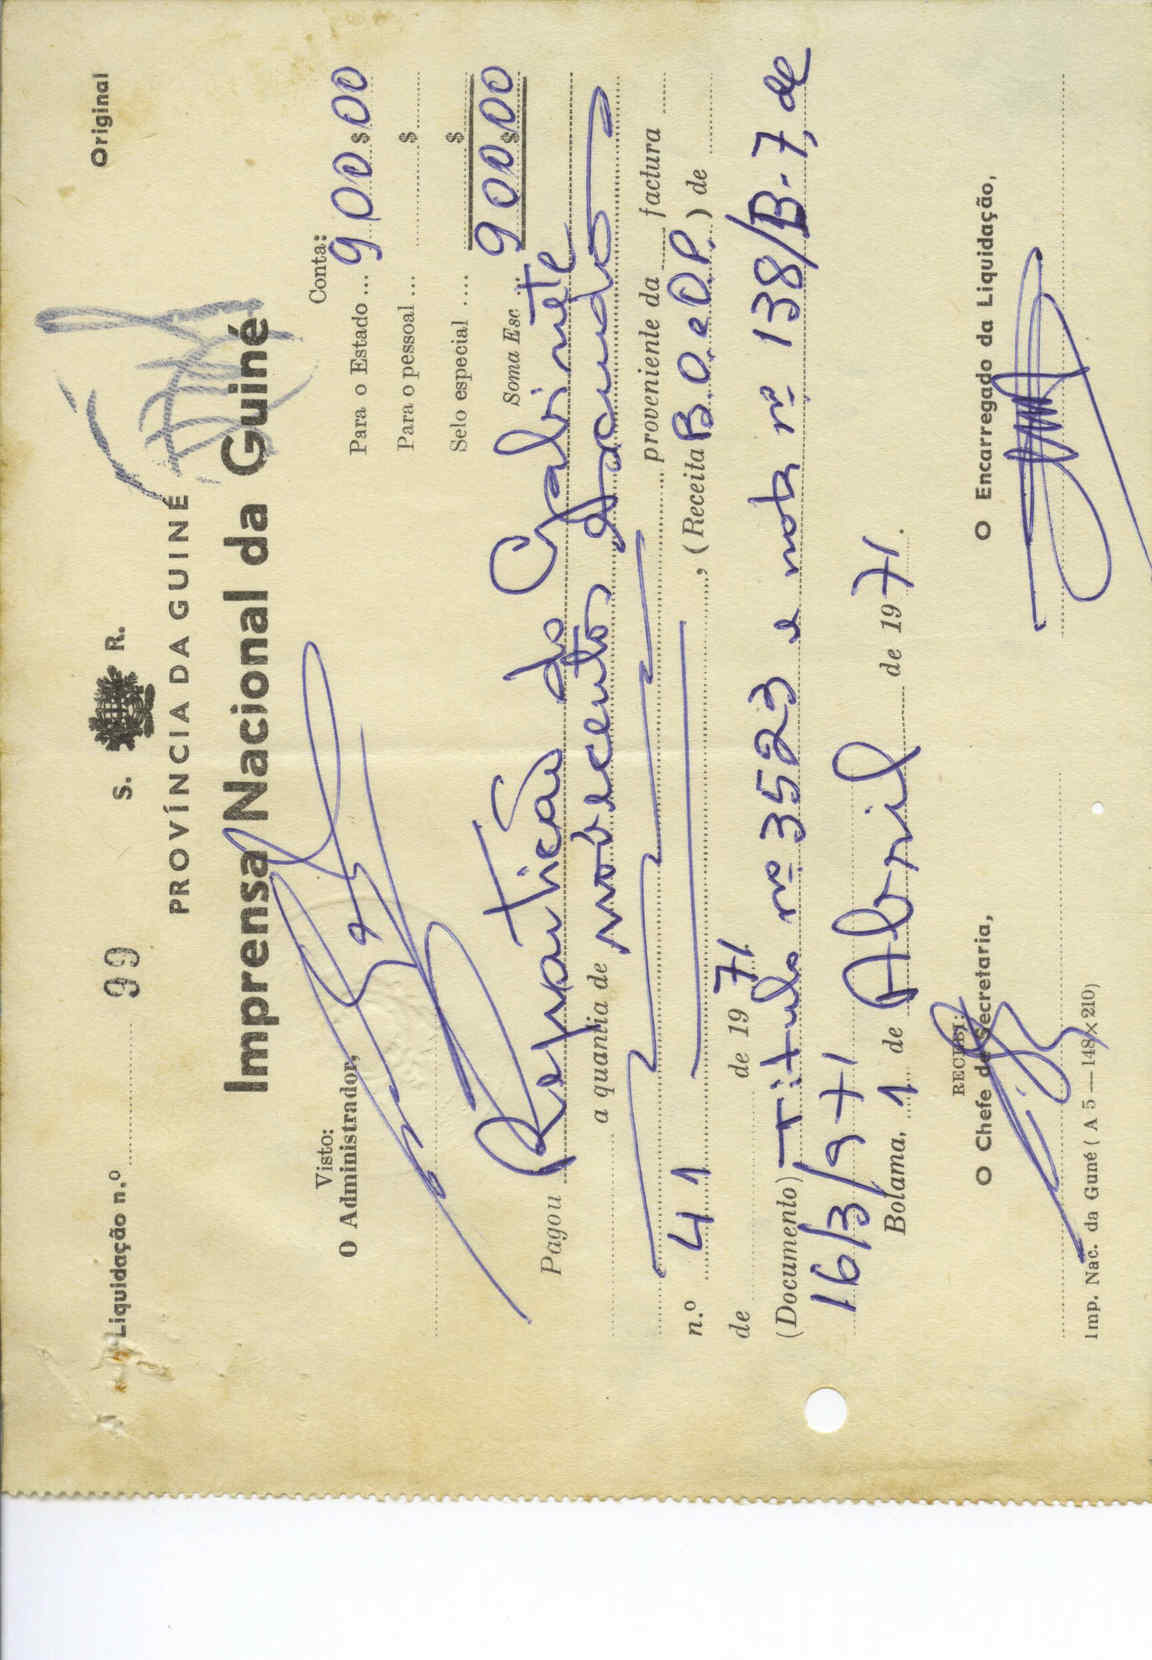 Liquidação n.º 99 S. R. Original
PROVÍNCIA DA GUINÉ
Imprensa Nacional da Guiné
Visto:
O Administrador,
Conta:
Para o Estado ... 900$00
Para o pessoal ... $
Selo especial .... $
Soma Esc ... 900$00
Pagou Repartição do Gabinete
a quantia de novecentos escudos
proveniente da factura
n.º 41, (Receita B.O. e O.P.) de
de de 1971
(Documento) Título nº 3523 e nota nº 138/B-7, de
16/3/971
Bolama, 1 de Abril de 1971.
RECEBI:
O Chefe de Secretaria,
O Encarregado da Liquidação,
Imp. Nac. da Guné ( A 5 — 148×210)